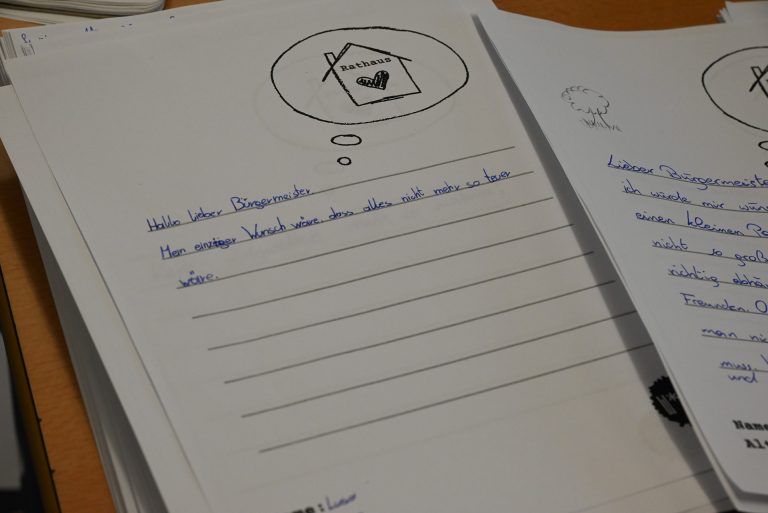 Rathaus
Hallo lieber Bürgermeister
Mein einziger Wunsch wäre, dass alles nicht mehr so teuer
wäre.
Lieber Bürgermeiste
ich würde mir wün
einen kleinen
nicht so groß
richtig
Freunden.
man
und
Name